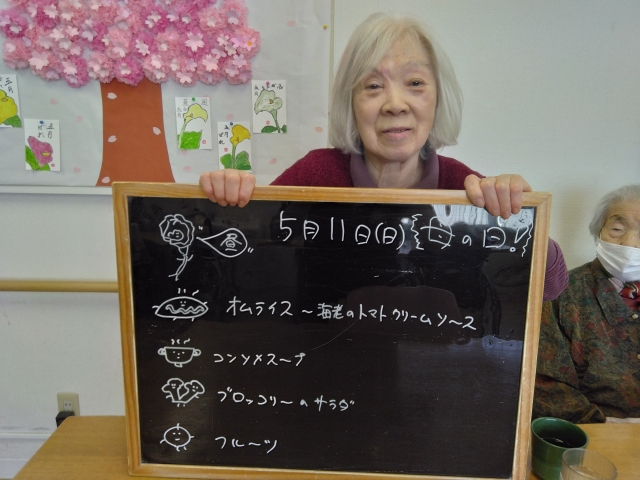 昼 5月11日(日) 母の日!
オムライス〜海老のトマトクリームソース
コンソメスープ
ブロッコリーのサラダ
フルーツ